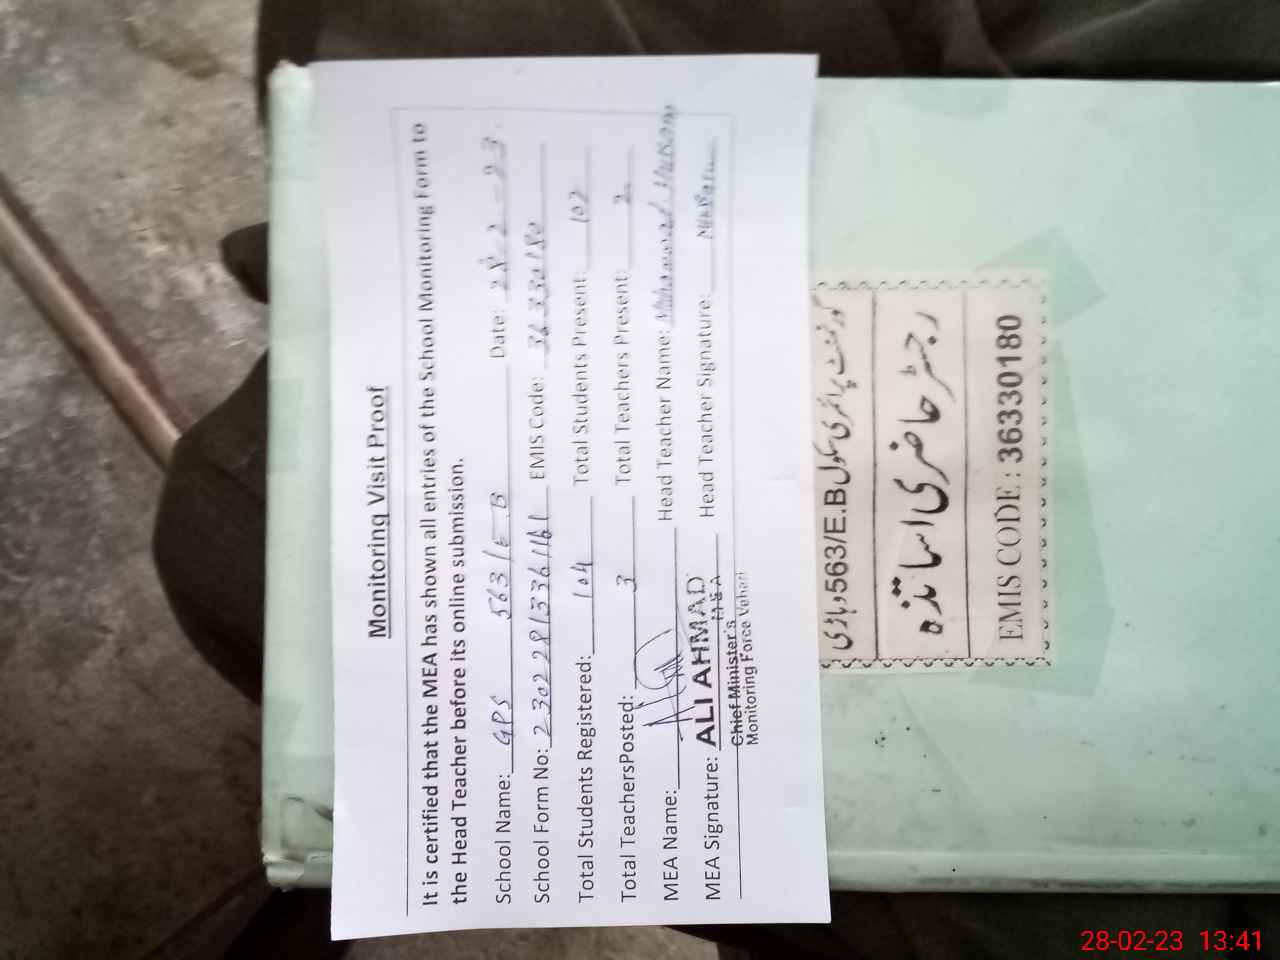 Monitoring Visit Proof
It is certified that the MEA has shown all entries of the School Monitoring Form to
the Head Teacher before its online submission.
School Name: GPS 563/E.B Date: 28-2-23
School Form No: 23022813361161 EMIS Code: 36330180
Total Students Registered: 104 Total Students Present: 102
Total TeachersPosted: 3 Total Teachers Present: 2
MEA Name: Head Teacher Name: Muhammad
MEA Signature: Head Teacher Signature:
ALI AHMAD
MEA
Chief Minister's
Monitoring Force Vehari
گورنمنٹ پرائمری سکول 563/E.B وہاڑی
رجسٹر حاضری اساتذہ
EMIS CODE : 36330180
28-02-23 13:41